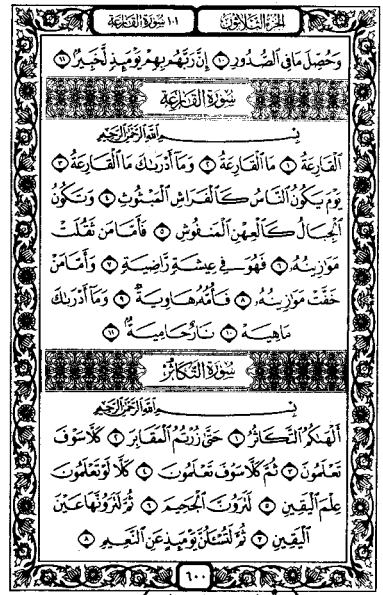 الجزء الثلاثون ١٠١ سورة القارعة
وَحُصِّلَ مَا فِي ٱلصُّدُورِ ١٠ إِنَّ رَبَّهُم بِهِمْ يَوْمَئِذٍ لَّخَبِيرٌۢ ١١
سُورَةُ القَارِعَةِ
بِسْمِ ٱللَّهِ ٱلرَّحْمَٰنِ ٱلرَّحِيمِ
ٱلْقَارِعَةُ ١ مَا ٱلْقَارِعَةُ ٢ وَمَآ أَدْرَىٰكَ مَا ٱلْقَارِعَةُ ٣
يَوْمَ يَكُونُ ٱلنَّاسُ كَٱلْفَرَاشِ ٱلْمَبْثُوثِ ٤ وَتَكُونُ
ٱلْجِبَالُ كَٱلْعِهْنِ ٱلْمَنفُوشِ ٥ فَأَمَّا مَن ثَقُلَتْ
مَوَٰزِينُهُۥ ٦ فَهُوَ فِي عِيشَةٍ رَّاضِيَةٍ ٧ وَأَمَّا مَنْ
خَفَّتْ مَوَٰزِينُهُۥ ٨ فَأُمُّهُۥ هَاوِيَةٌ ٩ وَمَآ أَدْرَىٰكَ
مَا هِيَهْ ١٠ نَارٌ حَامِيَةٌۢ ١١
سُورَةُ التَّكَاثُرِ
بِسْمِ ٱللَّهِ ٱلرَّحْمَٰنِ ٱلرَّحِيمِ
أَلْهَىٰكُمُ ٱلتَّكَاثُرُ ١ حَتَّىٰ زُرْتُمُ ٱلْمَقَابِرَ ٢ كَلَّا سَوْفَ
تَعْلَمُونَ ٣ ثُمَّ كَلَّا سَوْفَ تَعْلَمُونَ ٤ كَلَّا لَوْ تَعْلَمُونَ
عِلْمَ ٱلْيَقِينِ ٥ لَتَرَوُنَّ ٱلْجَحِيمَ ٦ ثُمَّ لَتَرَوُنَّهَا عَيْنَ
ٱلْيَقِينِ ٧ ثُمَّ لَتُسْـَٔلُنَّ يَوْمَئِذٍ عَنِ ٱلنَّعِيمِ ٨
٦٠٠